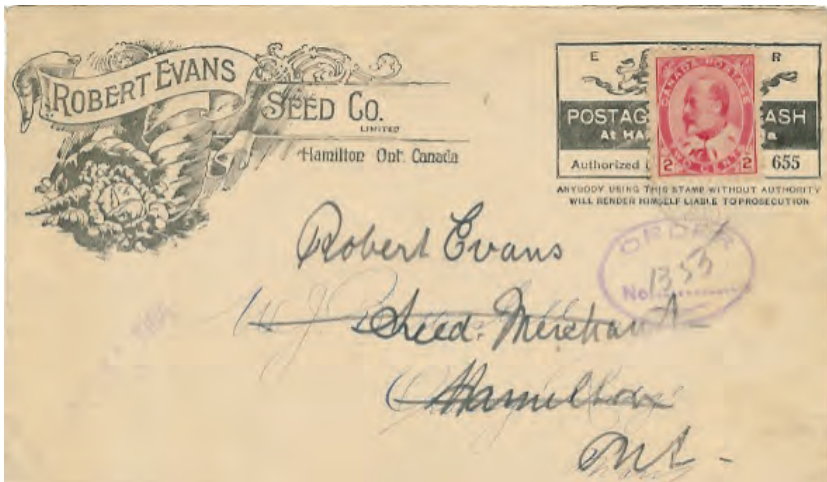 ROBERT EVANS
SEED CO.
LIMITED
Hamilton Ont. Canada
E R
CANADA POSTAGE
POSTAG ASH
At HA a
2 CENTS 2
Authorized 655
ANYBODY USING THIS STAMP WITHOUT AUTHORITY
WILL RENDER HIMSELF LIABLE TO PROSECUTION
ORDER
No. 1353
Robert Evans
Seed Merchant
Hamilton
Ont.